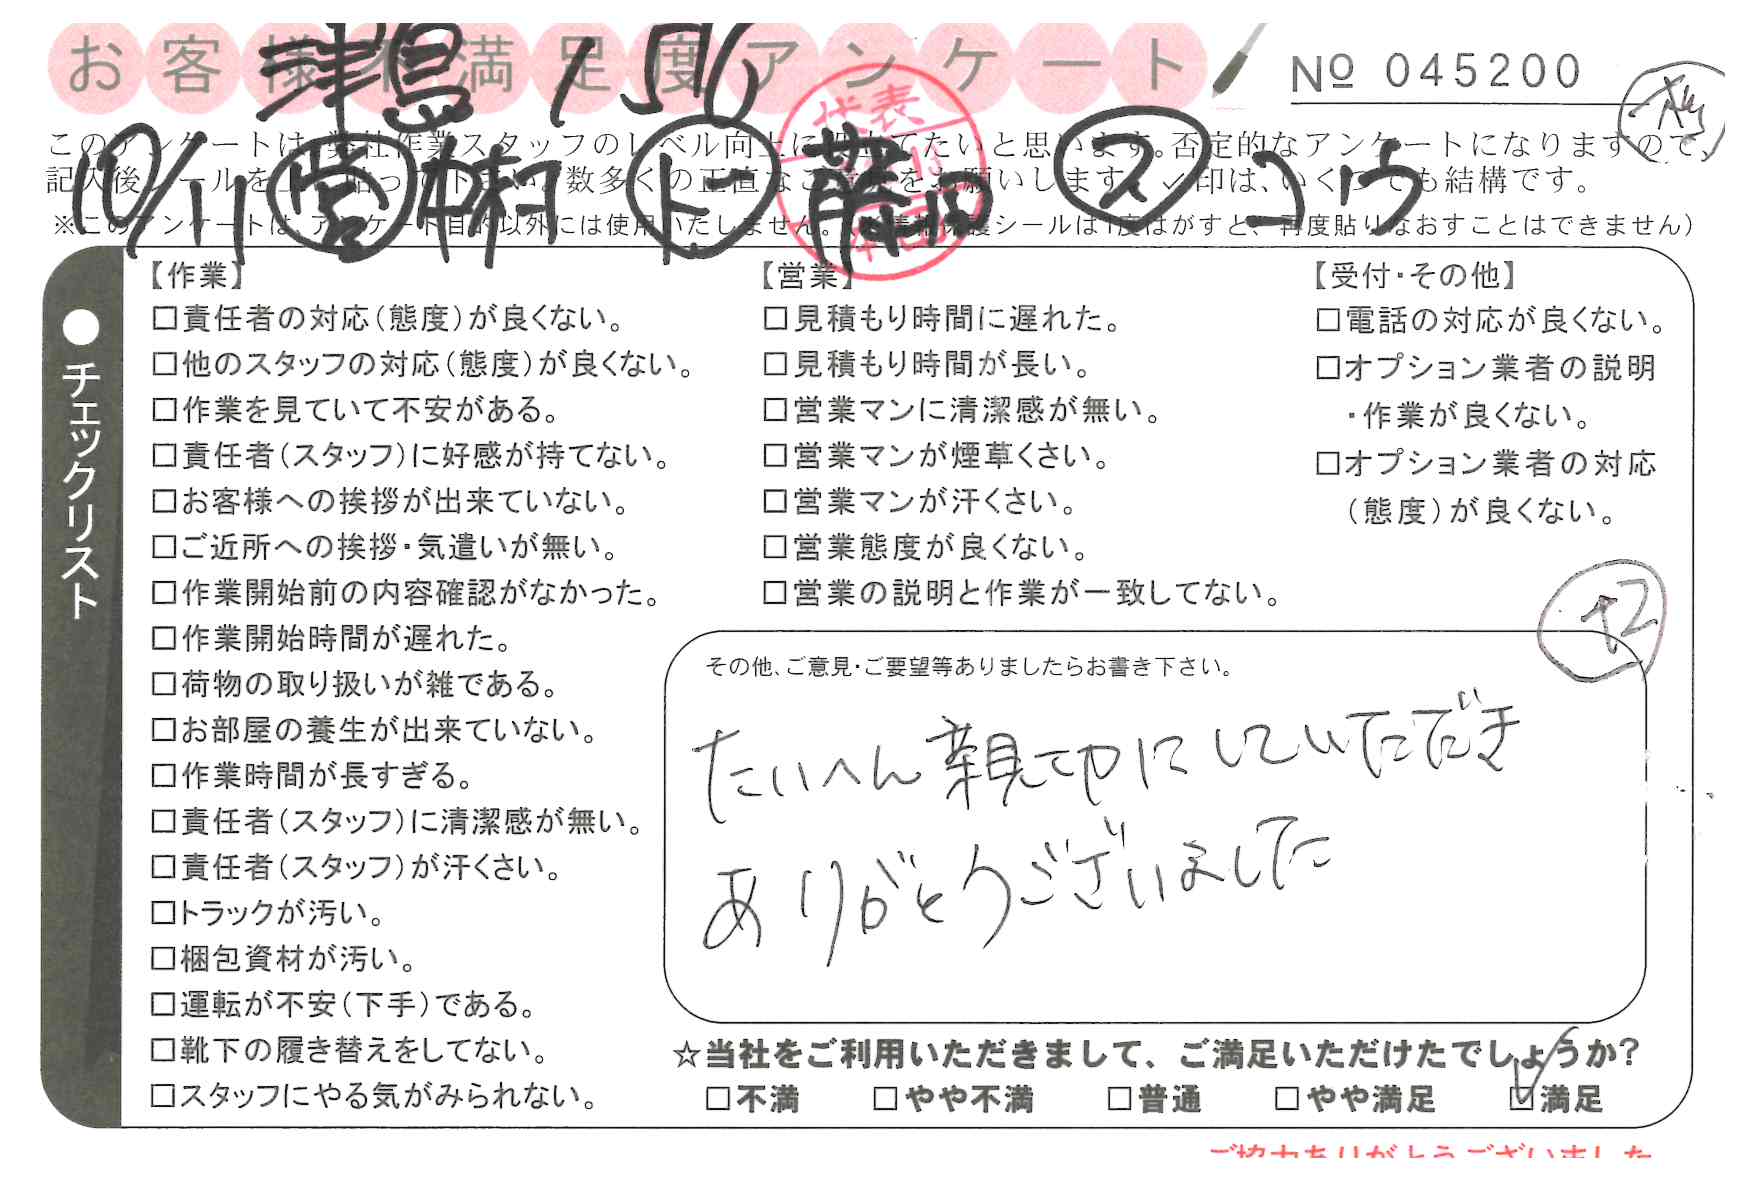 お客様不満足度アンケート
№ 045200
津島 1576
このアンケートは、弊社作業スタッフのレベル向上に役立てたいと思います。否定的なアンケートになりますので、
10/11 営 中村 ド 藤田 ス コウ
記入後シールを上に貼って下さい。数多くの正直なご意見をお願いします。✓印は、いくつでも結構です。
※このアンケートは、アンケート目的以外には使用いたしません。(情報保護シールは1度はがすと、再度貼りなおすことはできません)
代表
チェックリスト
【作業】
□責任者の対応(態度)が良くない。
□他のスタッフの対応(態度)が良くない。
□作業を見ていて不安がある。
□責任者(スタッフ)に好感が持てない。
□お客様への挨拶が出来ていない。
□ご近所への挨拶・気遣いが無い。
□作業開始前の内容確認がなかった。
□作業開始時間が遅れた。
□荷物の取り扱いが雑である。
□お部屋の養生が出来ていない。
□作業時間が長すぎる。
□責任者(スタッフ)に清潔感が無い。
□責任者(スタッフ)が汗くさい。
□トラックが汚い。
□梱包資材が汚い。
□運転が不安(下手)である。
□靴下の履き替えをしてない。
□スタッフにやる気がみられない。
【営業】
□見積もり時間に遅れた。
□見積もり時間が長い。
□営業マンに清潔感が無い。
□営業マンが煙草くさい。
□営業マンが汗くさい。
□営業態度が良くない。
□営業の説明と作業が一致してない。
【受付・その他】
□電話の対応が良くない。
□オプション業者の説明
・作業が良くない。
□オプション業者の対応
(態度)が良くない。
その他、ご意見・ご要望等ありましたらお書き下さい。
たいへん親切にしていただき
ありがとうございました
☆当社をご利用いただきまして、ご満足いただけたでしょうか?
□不満 □やや不満 □普通 □やや満足 ☑満足
ご協力ありがとうございました